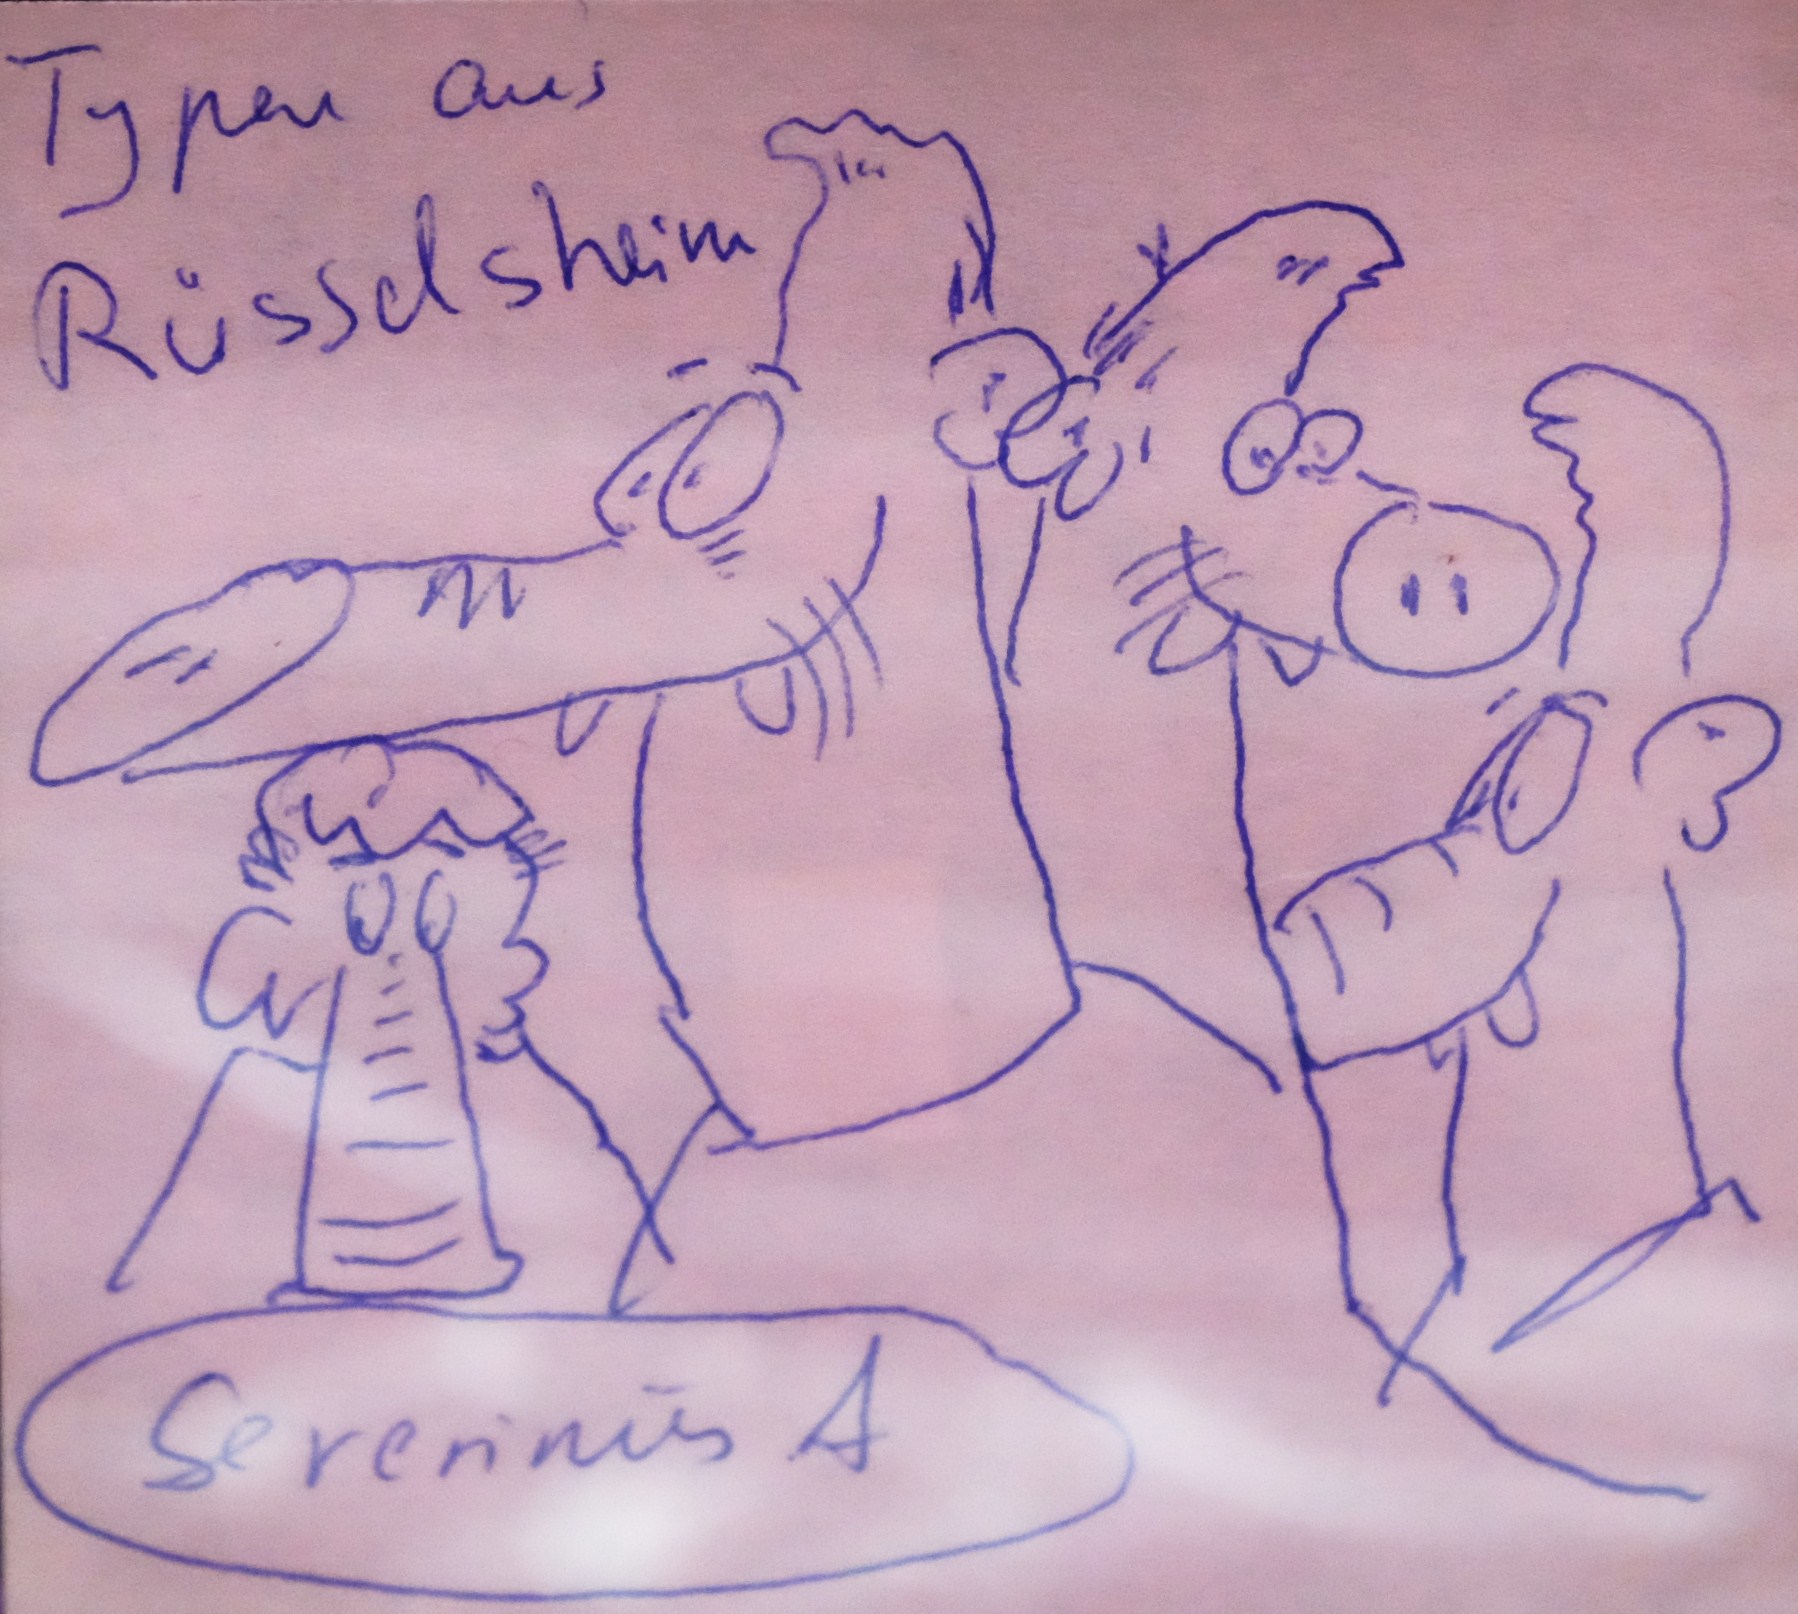 Typen aus
Rüsselsheim
Severinus A